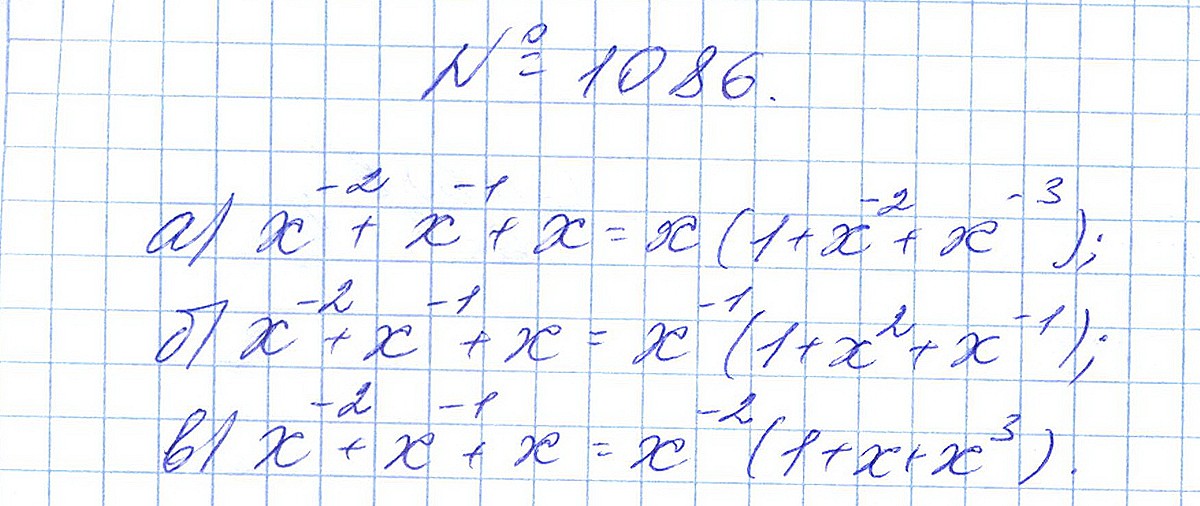 № 1086.
а) x⁻² + x⁻¹ + x = x (1 + x⁻² + x⁻³);
б) x⁻² + x⁻¹ + x = x⁻¹ (1 + x² + x⁻¹);
в) x⁻² + x⁻¹ + x = x⁻² (1 + x + x³).